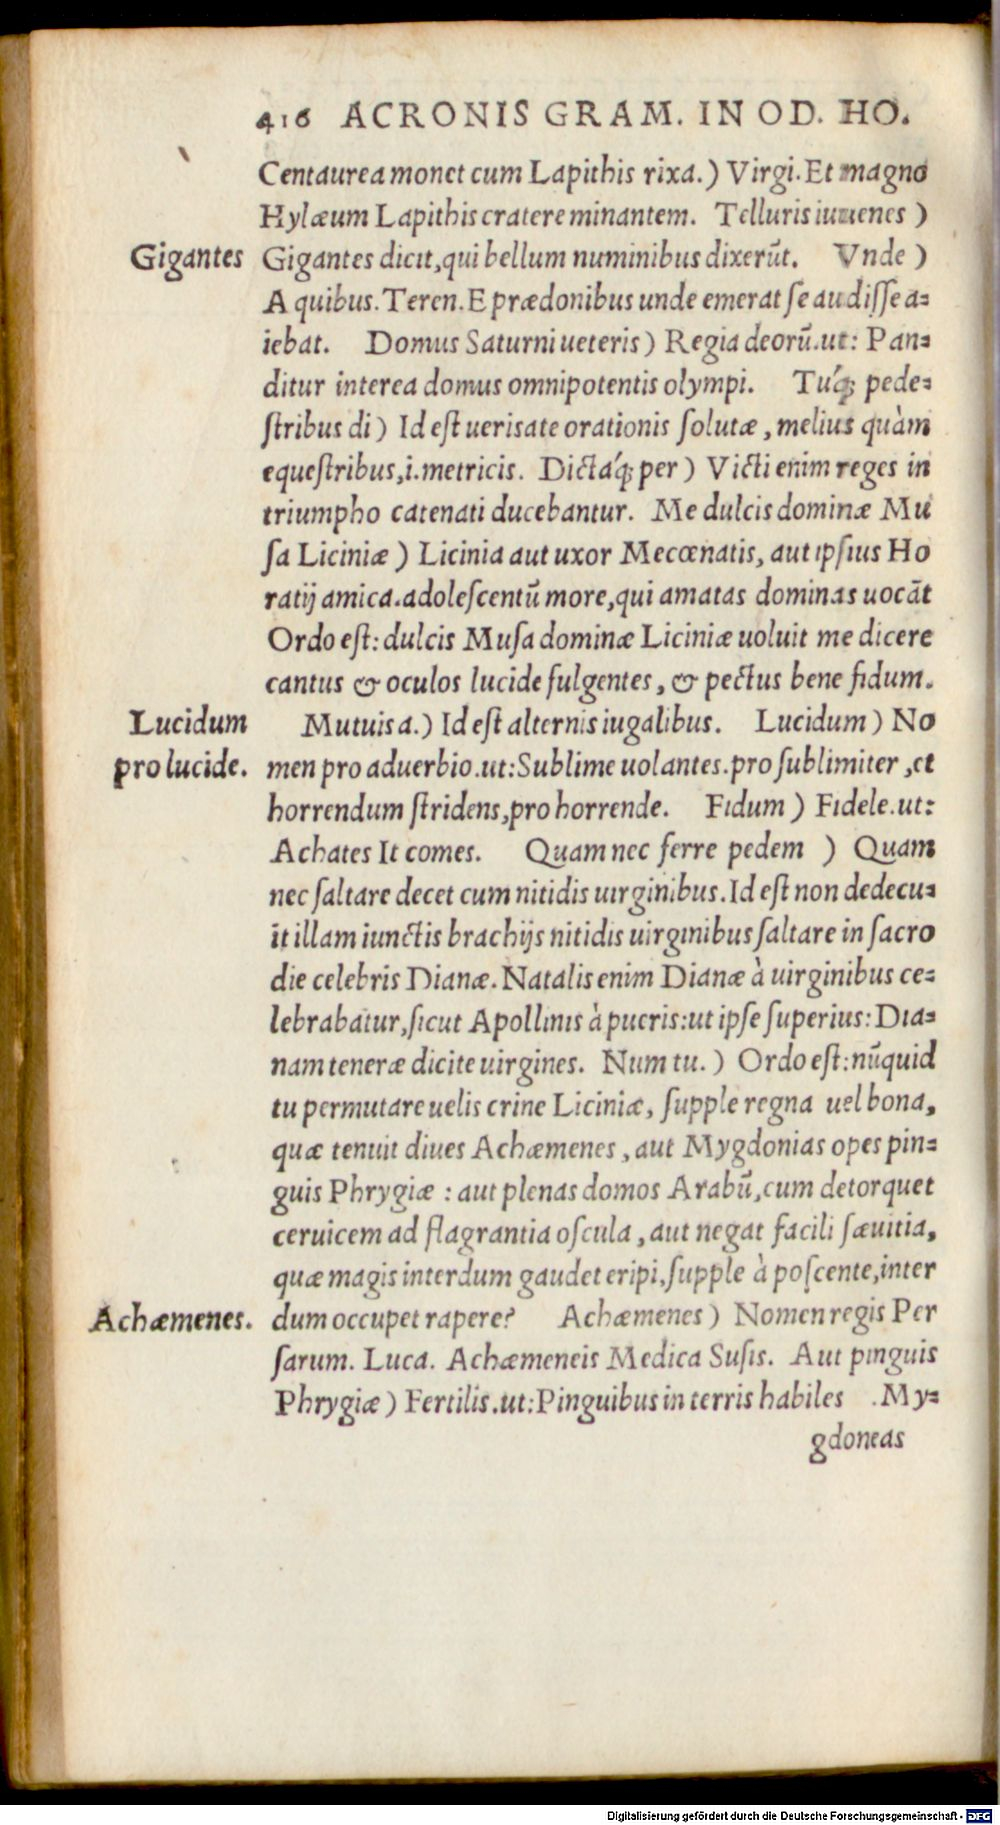 416 ACRONIS GRAM. IN OD. HO.
Centaurea monet cum Lapithis rixa.) Virgi. Et magno
Hylæum Lapithis cratere minantem. Telluris iuuenes )
Gigantes
Gigantes dicit, qui bellum numinibus dixerūt. Vnde )
A quibus. Teren. E prædonibus unde emerat se audisse a=
iebat. Domus Saturni ueteris) Regia deorū.ut: Pan=
ditur interea domus omnipotentis olympi. Tuq́; pede=
ſtribus di) Id eſt uerisate orationis ſolutæ, melius quàm
equeſtribus,i.metricis. Dictaq́; per) Victi enim reges in
triumpho catenati ducebantur. Me dulcis dominæ Mu
ſa Liciniæ) Licinia aut uxor Mecœnatis, aut ipſius Ho
ratij amica.adoleſcentū more,qui amatas dominas uocāt
Ordo eſt: dulcis Muſa dominæ Liciniæ uoluit me dicere
cantus & oculos lucide fulgentes, & pectus bene fidum.
Lucidum
Mutuis a.) Id eſt alternis iugalibus. Lucidum) No
pro lucide.
men pro aduerbio.ut:Sublime uolantes.pro ſublimiter,et
horrendum ſtridens,pro horrende. Fidum) Fidele.ut:
Achates It comes. Quam nec ferre pedem ) Quam
nec ſaltare decet cum nitidis uirginibus.Id eſt non dedecu=
it illam iunctis brachijs nitidis uirginibus ſaltare in ſacro
die celebris Dianæ. Natalis enim Dianæ à uirginibus ce=
lebrabatur,ſicut Apollinis à pueris:ut ipſe ſuperius:Dia=
nam teneræ dicite uirgines. Num tu.) Ordo eſt:nūquid
tu permutare uelis crine Liciniæ, ſupple regna uel bona,
quæ tenuit diues Achæmenes, aut Mygdonias opes pin=
guis Phrygiæ : aut plenas domos Arabū,cum detorquet
ceruicem ad flagrantia oſcula, aut negat facili ſæuitia,
quæ magis interdum gaudet eripi,ſupple à poſcente,inter
Achæmenes.
dum occupet rapere? Achæmenes) Nomen regis Per
ſarum. Luca. Achæmeneis Medica Suſis. Aut pinguis
Phrygiæ) Fertilis.ut:Pinguibus in terris habiles .My=
gdoneas
Digitalisierung gefördert durch die Deutsche Forschungsgemeinschaft - DFG